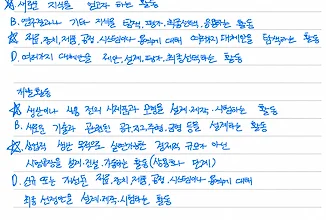 ☆. 새로운 지식을 얻고자 하는 활동
B. 연구결과나 기타 지식을 탐색, 평가, 최종선택, 응용하는 활동
☆ 재료, 장치, 제품, 공정, 시스템이나 용역에 대해 여러가지 대체안을 탐색하는 활동
D. 여러가지 대체안을 제안, 설계, 평가, 최종선택하는 활동
개발활동
☆ 생산이나 사용 전의 시제품과 모형을 설계·제작·시험하는 활동
B. 새로운 기술과 관련된 공구, 지그, 주형, 금형 등을 설계하는 활동
☆ 상업적 생산 목적으로 실현가능한 경제적 규모가 아닌
시험공장을 설계·건설·가동하는 활동(상용화 단계)
D. 신규 또는 개선된 재료, 장치, 제품, 공정, 시스템이나 용역에 대해
최종 선정안을 설계·제작·시험하는 활동